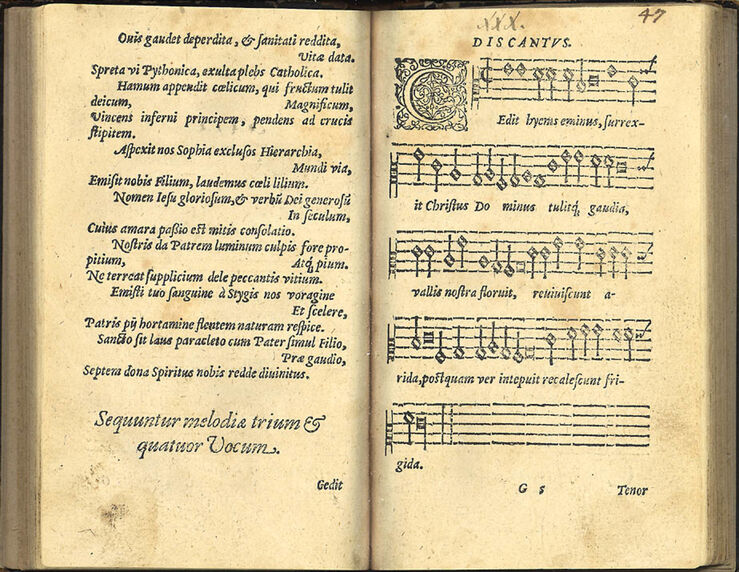 Ouis gaudet deperdita, & sanitati reddita,
Vitæ data.
Spreta vi Pythonica, exulta plebs Catholica.
Hamum appendit cœlicum, qui fructum tulit
deicum, Magnificum,
Vincens inferni principem, pendens ad crucis
stipitem.
Aspexit nos Sophia exclusos Hierarchia,
Mundi via,
Emisit nobis Filium, laudemus cœli lilium.
Nomen Iesu gloriosum, & verbũ Dei generosũ
In seculum,
Cuius amara passio est mitis consolatio.
Nostris da Patrem luminum culpis fore pro-
pitium, Atq́; pium.
Ne terreat supplicium dele peccantis vitium.
Emisti tuo sanguine à Stygis nos voragine
Et scelere,
Patris pij hortamine flentem naturam respice.
Sancto sit laus paracleto cum Pater simul Filio,
Præ gaudio,
Septem dona Spiritus nobis redde divinitus.
Sequuntur melodiæ trium &
quatuor Vocum.
Gedit
XXX.
47
DISCANTVS.
Edit hyems eminus, surrex-
it Christus Do minus tulitq́; gaudia,
vallis nostra floruit, reuiuiscunt a-
rida, postquam ver intepuit recalescunt fri-
gida.
G 5 Tenor